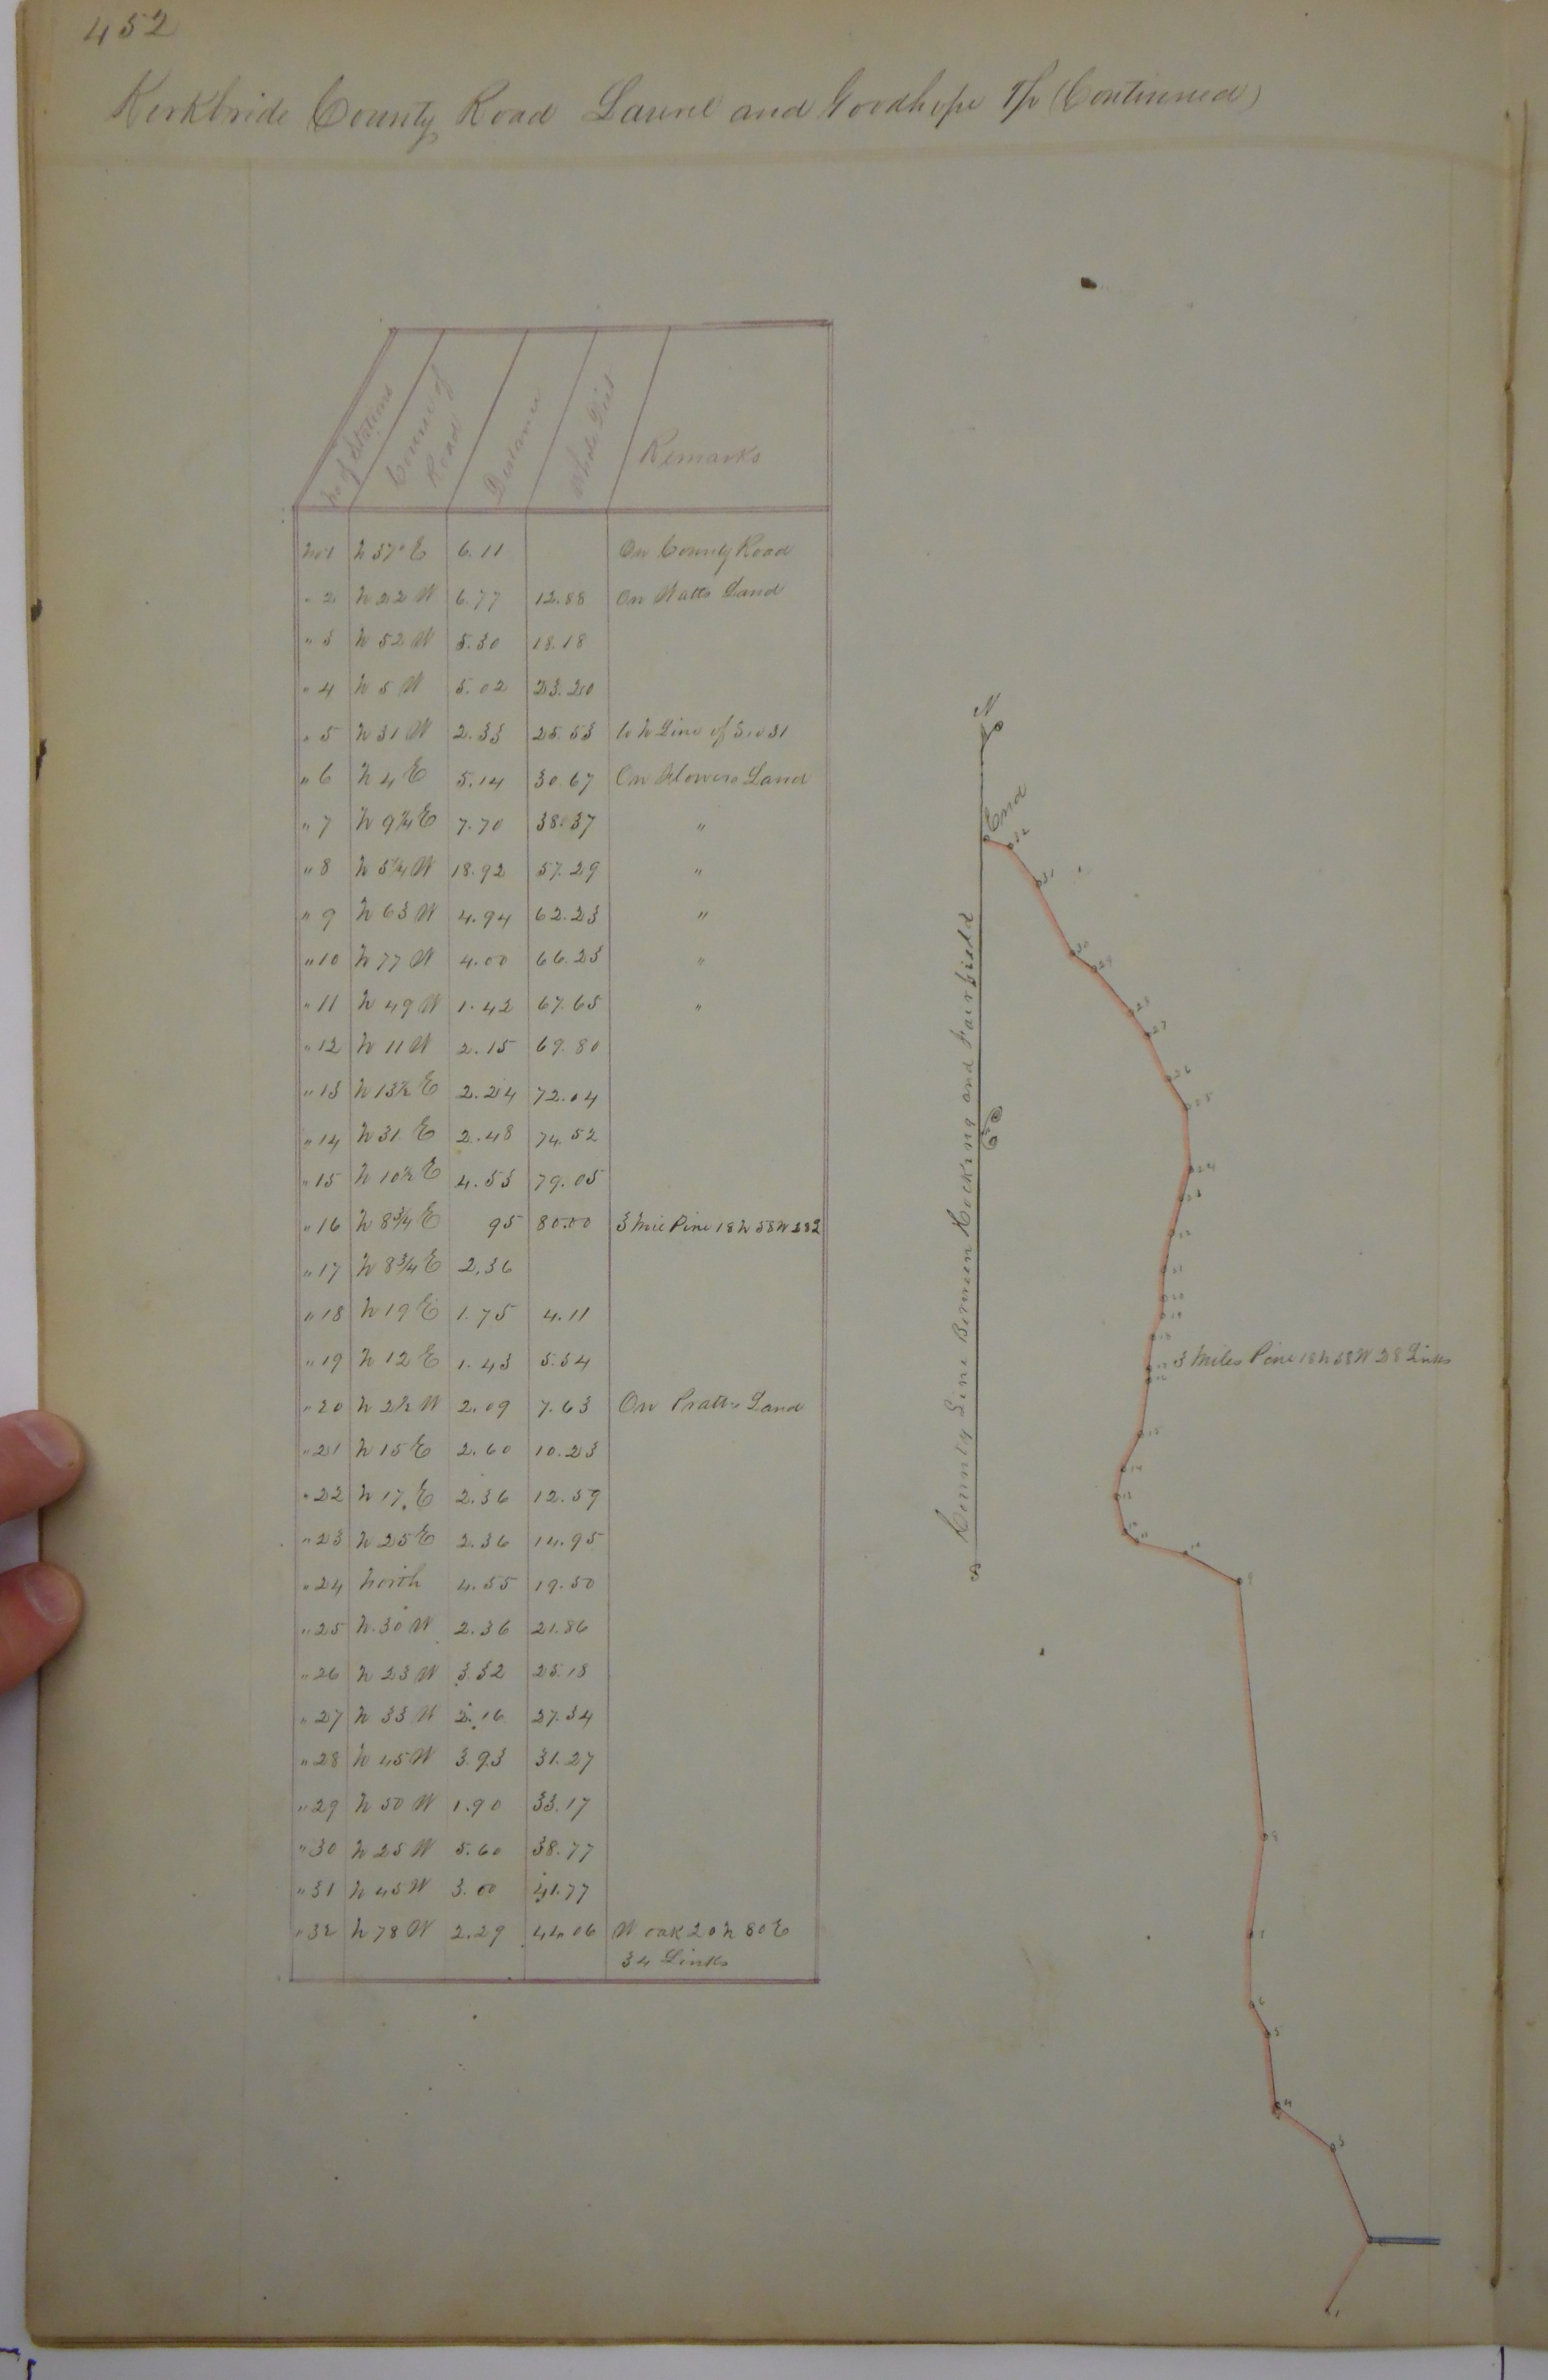 452
Kerkbride County Road Laurel and Goodhope T/p (Continued)
No of Stations Course of Road Distance Whole Dist Remarks
No 1 N 37° E 6.11 On County Road
" 2 N 22 W 6.77 12.88 On Watts Land
" 3 N 52 W 5.30 18.18
" 4 N 5 W 5.02 23.20
" 5 N 31 W 2.33 25.53 to N Line of Sec 31
" 6 N 4 E 5.14 30.67 On Land
" 7 N 9 1/4 E 7.70 38.37 "
" 8 N 5 1/4 W 18.92 57.29 "
" 9 N 63 W 4.94 62.23 "
" 10 N 77 W 4.00 66.23 "
" 11 N 49 W 1.42 67.65 "
" 12 N 11 W 2.15 69.80
" 13 N 13 1/2 E 2.24 72.04
" 14 N 31 E 2.48 74.52
" 15 N 10 1/2 E 4.53 79.05
" 16 N 8 3/4 E 95 80.00 3 Mie Pine 18 N 58 W
" 17 N 8 3/4 E 2.36
" 18 N 19 E 1.75 4.11
" 19 N 12 E 1.43 5.54
" 20 N 2 1/2 W 2.09 7.63 On Pratts Land
" 21 N 15 E 2.60 10.23
" 22 N 17 E 2.36 12.59
" 23 N 25 E 2.36 14.95
" 24 North 4.55 19.50
" 25 N 30 W 2.36 21.86
" 26 N 23 W 3.32 25.18
" 27 N 33 W 2.16 27.34
" 28 N 45 W 3.93 31.27
" 29 N 50 W 1.90 33.17
" 30 N 25 W 5.60 38.77
" 31 N 45 W 3.00 41.77
" 32 N 78 W 2.29 44.06 W oak 20 N 80 E
34 Links
N
End
32
31
30
29
28
27
26
25
24
23
22
21
20
19
18
17 3 Miles Pine 18 N 58 W 38 Links
16
15
14
13
12
11
10
9
8
7
6
5
4
3
2
1
County Line Between Hocking and Fairfield
S